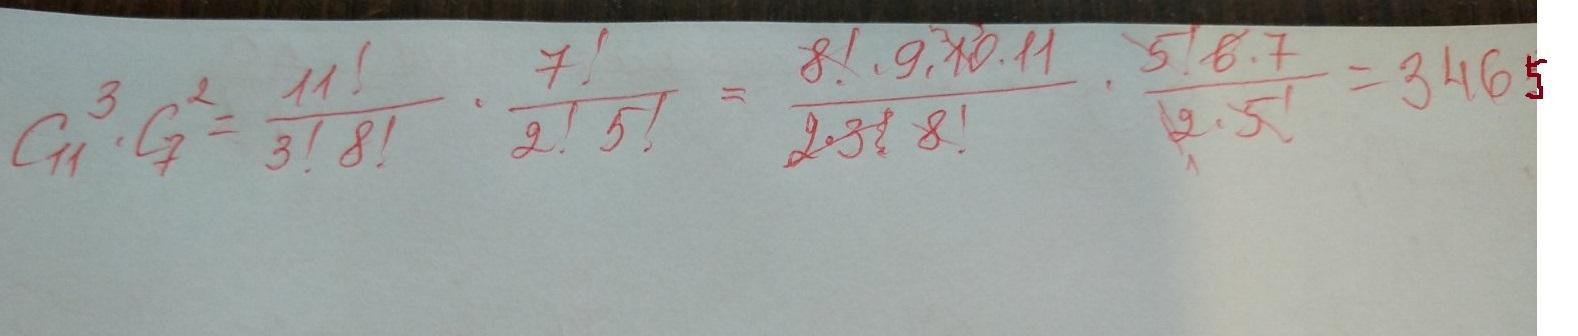 C₁₁³ · C₇² = 11!/(3! 8!) · 7!/(2! 5!) = (8! · 9 · 10 · 11)/(2 · 3 8!) · (5! 6 · 7)/(2 · 5!) = 3465